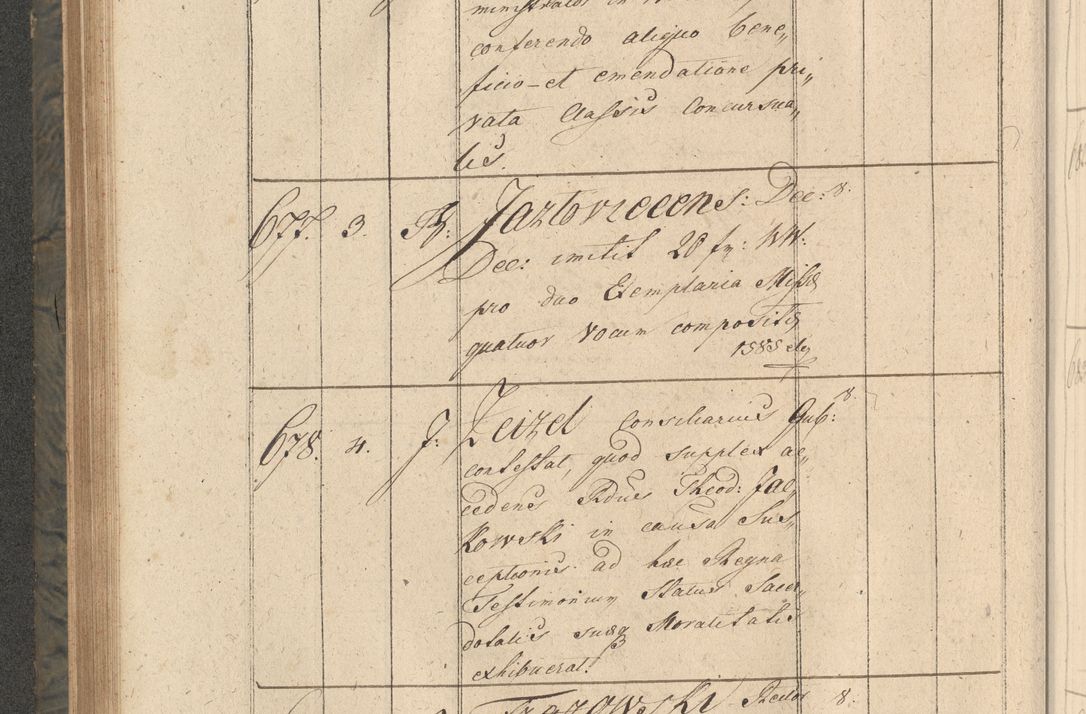 ministrator in
conferendo aliquo Bene„
ficio - et emendatione pri„
vata Classis Concursua„
lis.
677. 3. B: Jaztoviecens: Dec: 8.
Dec: imitit 20 fr: WW:
pro duo Exemplaria Missæ
quatuor Vocum compositæ
1585 etc
678. 4. J: Zeizel Consiliarius Gub: 8.
contestat, quod supplex ac„
cedens Rdus Theod: Jac„
kowski in causa Sus„
ceptionis ad hæc Regna
Testimonium Status Sacer„
dotalis suæq Moralitatis
exhibuerat.
Rector 8.